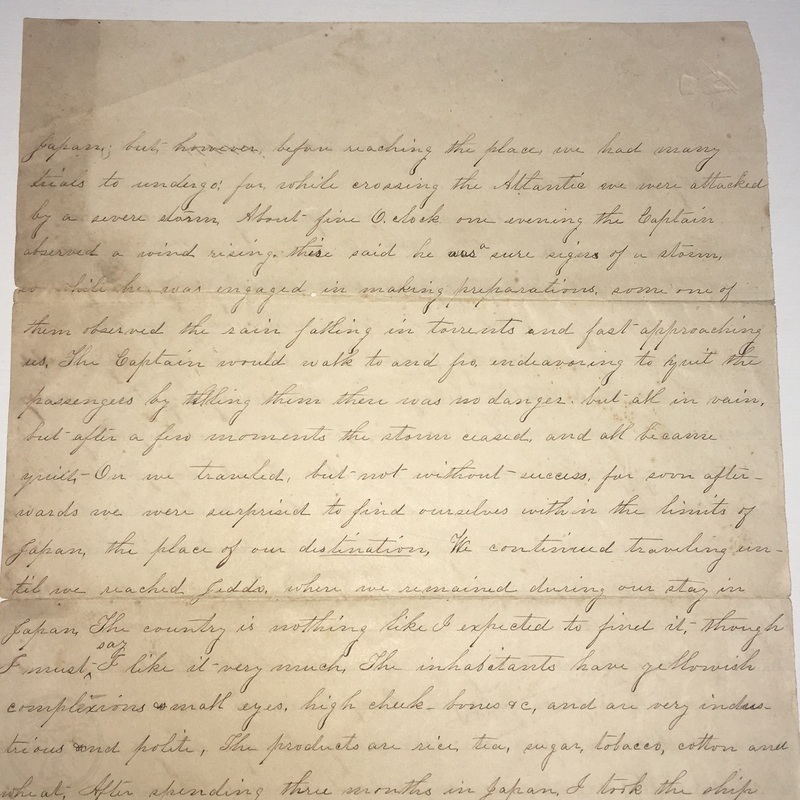 Japan; but, however, before reaching the place, we had many
trials to undergo; for, while crossing the Atlantic we were attacked
by a severe storm, About five O.clock one evening the Captain
observed a wind rising. this said he was a sure sign of a storm,
so while he was engaged in making preparations, some one of
them observed the rain falling in torrents and fast approaching
us, The Captain would walk to and fro, endeavoring to quit the
passengers by telling them there was no danger. but all in vain,
but after a few moments the storm ceased, and all became
quiet. On we traveled, but not without success, for soon after-
wards we were surprised to find ourselves within the limits of
Japan, the place of our destination, We continued traveling un-
til we reached Jeddo, where we remained during our stay in
Japan, The country is nothing like I expected to find it, though
I must say I like it very much, The inhabitants have yellowish
complexions small eyes, high cheek-bones &c, and are very indus-
trious and polite, The products are rice, tea, sugar, tobacco, cotton and
wheat, After spending three months in Japan, I took the ship